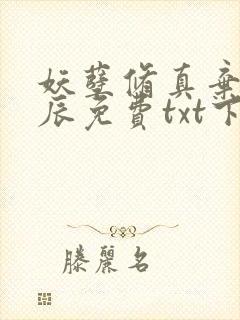 妖孽脩真棄
辰免費txt下
滕麗名